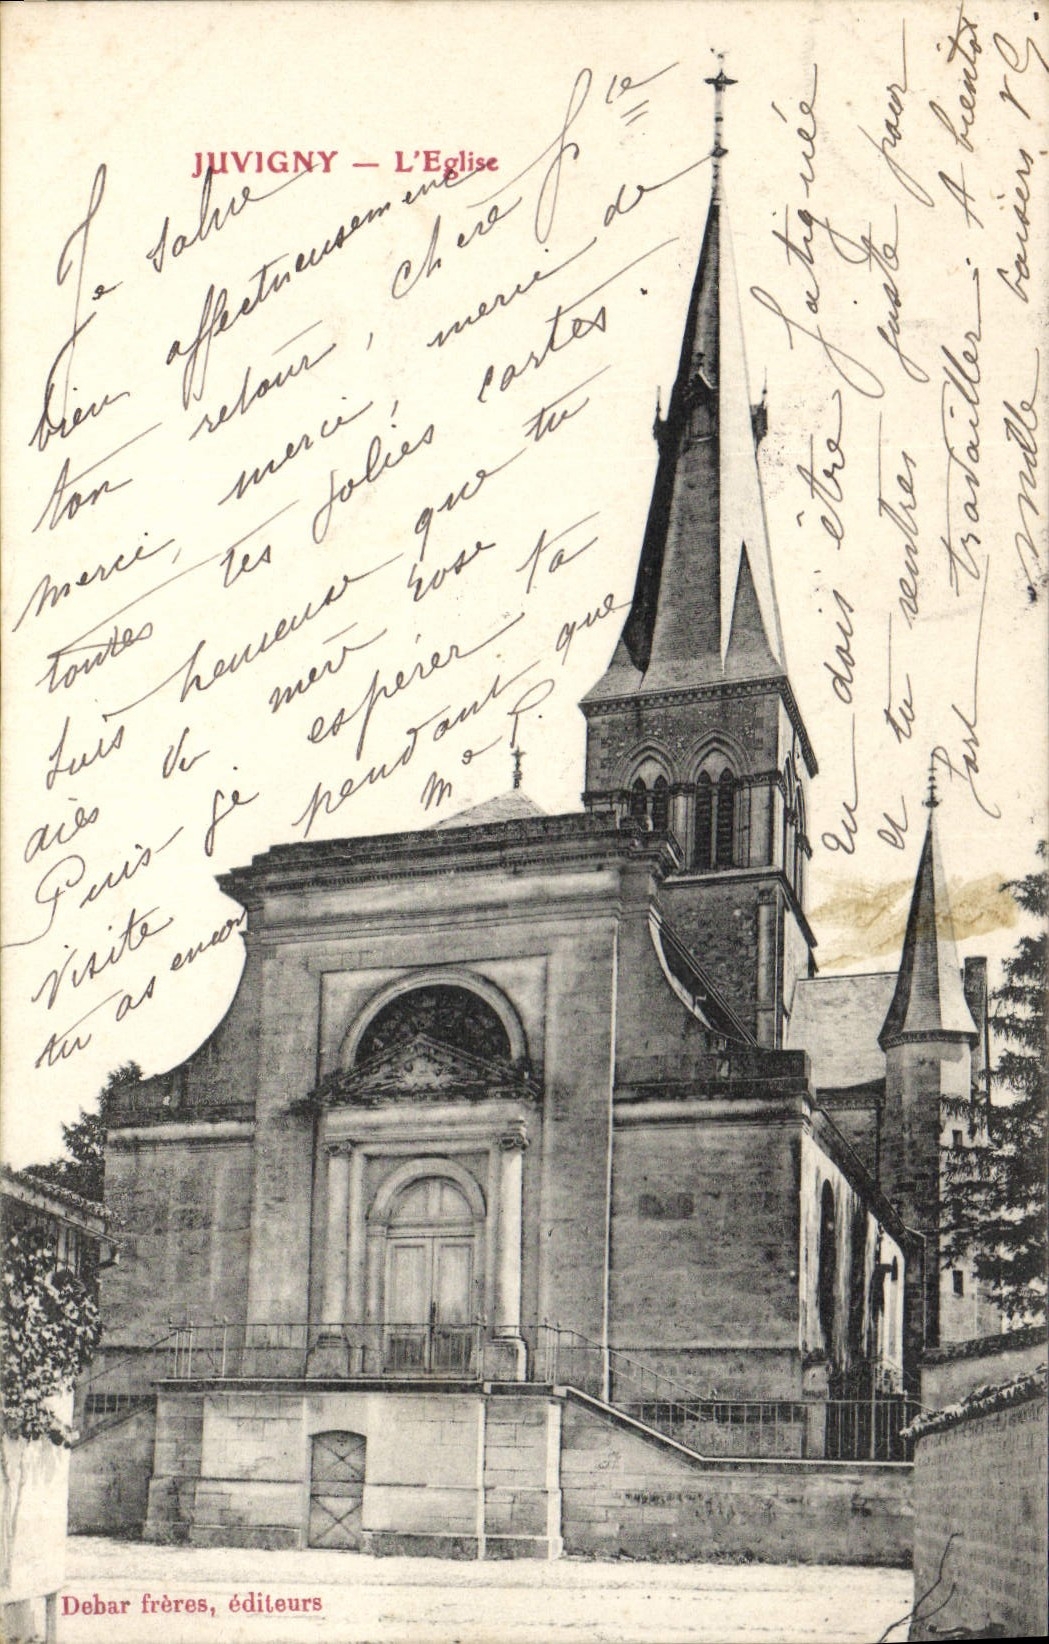 JUVIGNY — L'Eglise
Je salue
bien affectueusement
ton retour, chère
merci, merci, merci de
toutes tes jolies cartes.
suis heureuse que tu
aies vu mère Rose
Puis-je espérer ta
visite pendant que
tu as encore
Tu dois être fatiguée
et tu rentres juste pour
travailler. A bientôt
Mille baisers
Debar frères, éditeurs